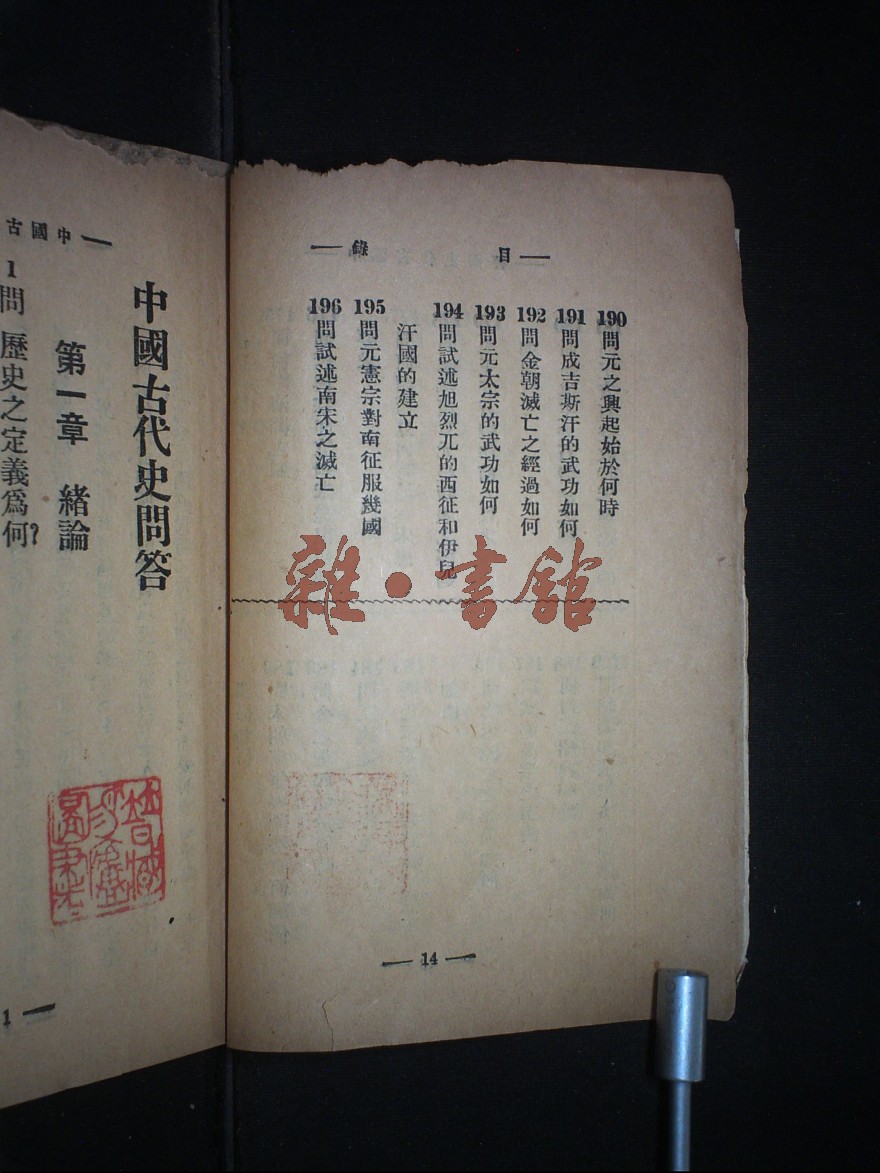 目錄
190問元之興起始於何時
191問成吉斯汗的武功如何
192問金朝滅亡之經過如何
193問元太宗的武功如何
194問試述旭烈兀的西征和伊兒
汗國的建立
195問元憲宗對南征服幾國
196問試述南宋之滅亡
14
雜·書館
中國古
中國古代史問答
第一章 緒論
1問 歷史之定義爲何?
1